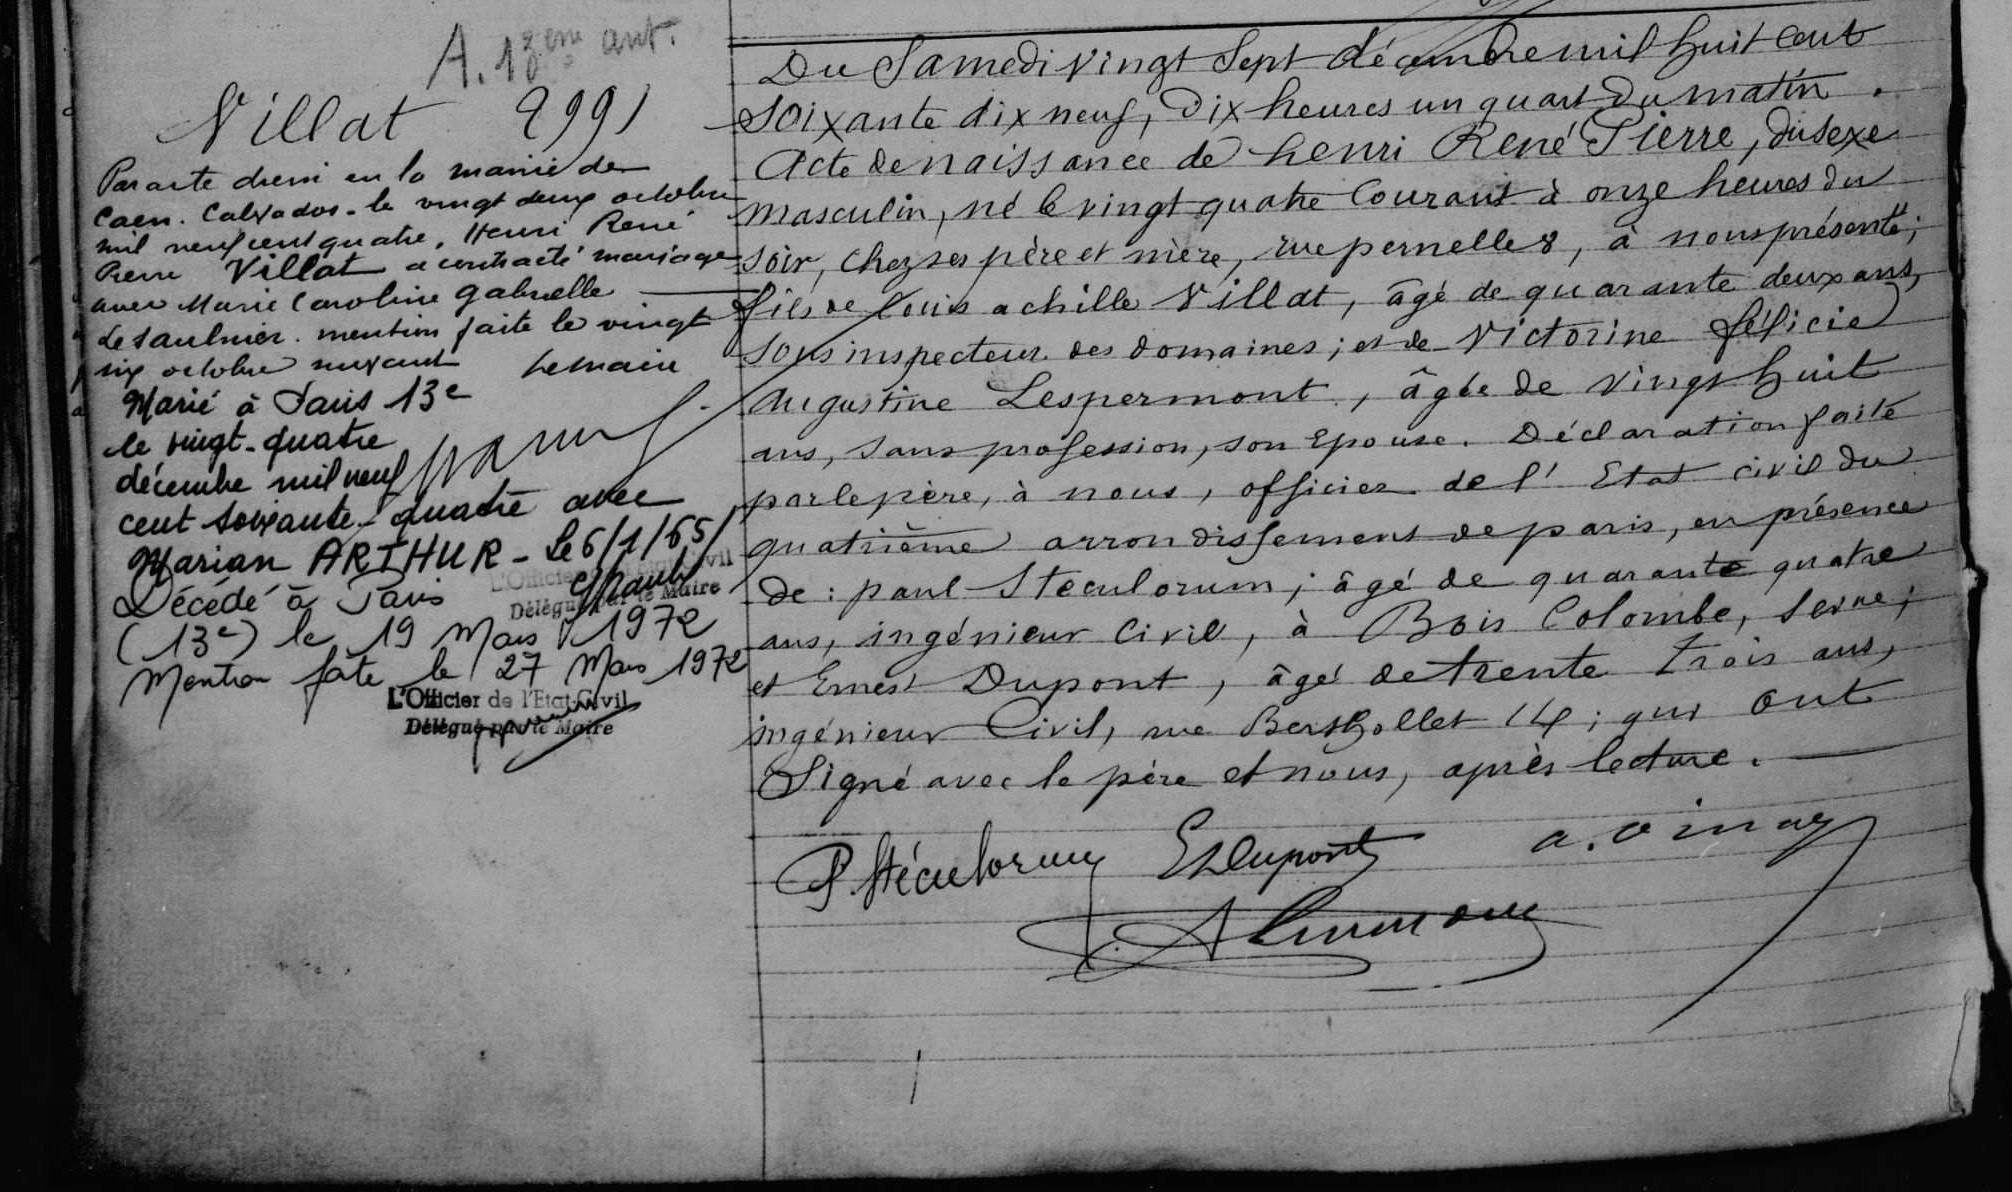 A. 13ème arr.
Villat 2991
Par acte dressé en la mairie de
Caen. Calvados. le vingt deux octobre
mil neuf cent quatre, Henri René
Pierre Villat a contracté mariage
avec Marie Caroline Gabrielle
Lesaulnier. mention faite le vingt
six octobre suivant
Marié à Paris 13e
le vingt-quatre
décembre mil neuf
cent soixante-quatre avec
Marian ARTHUR - Le 6/1/65
L'Officier de l'Etat-Civil
Délégué par le Maire
Décédé à Paris
(13e) le 19 Mars 1972
Mention faite le 27 Mars 1972
L'Officier de l'Etat-Civil
Délégué par le Maire
Du Samedi vingt Sept décembre mil huit cent
soixante dix neuf, dix heures un quart du matin.
Acte de naissance de henri René Pierre, du sexe
masculin, né le vingt quatre Courant à onze heures du
soir, chez ses père et mère, rue pernelle 8, à nous présenté;
fils de Louis achille Villat, âgé de quarante deux ans,
sous inspecteur des domaines; et de Victorine félicie
Augustine Lespermont, âgée de vingt huit
ans, sans profession, son Epouse. Déclaration faite
par le père, à nous, officier de l'Etat civil du
quatrième arrondissement de paris, en présence
de : paul Steculorum; âgé de quarante quatre
ans, ingénieur Civil, à Bois Colombe, Seine;
et Ernest Dupont, âgé de trente trois ans,
ingénieur Civil, rue Berthollet 14; qui ont
Signé avec le père et nous, après lecture.
P. Stéculorum E Dupont